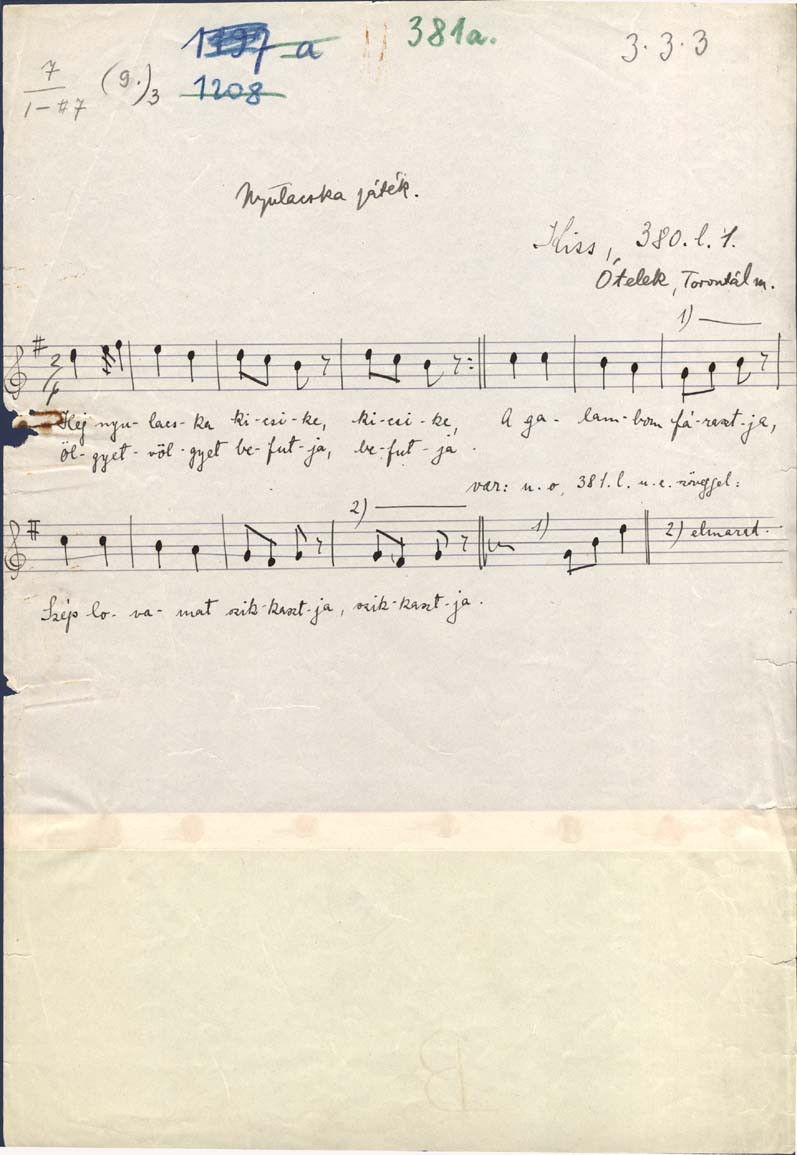 a 381a. 3.3.3
7 (9.)3 1208
1-#7
Nyulacska játék.
Kiss, 380.l.1.
Ótelek, Torontál m.
1)
2/4
Hej nyu-lacs-ka ki-csi-ke, ki-csi-ke, A ga-lam-bom fá-raszt-ja,
öl-gyet-völ-gyet be-fut-ja, be-fut-ja.
var: u.o. 381.l. u.e. szöveggel:
2) 1) 2) elmarad.
Szép lo-va-mat szik-kaszt-ja, szik-kaszt-ja.